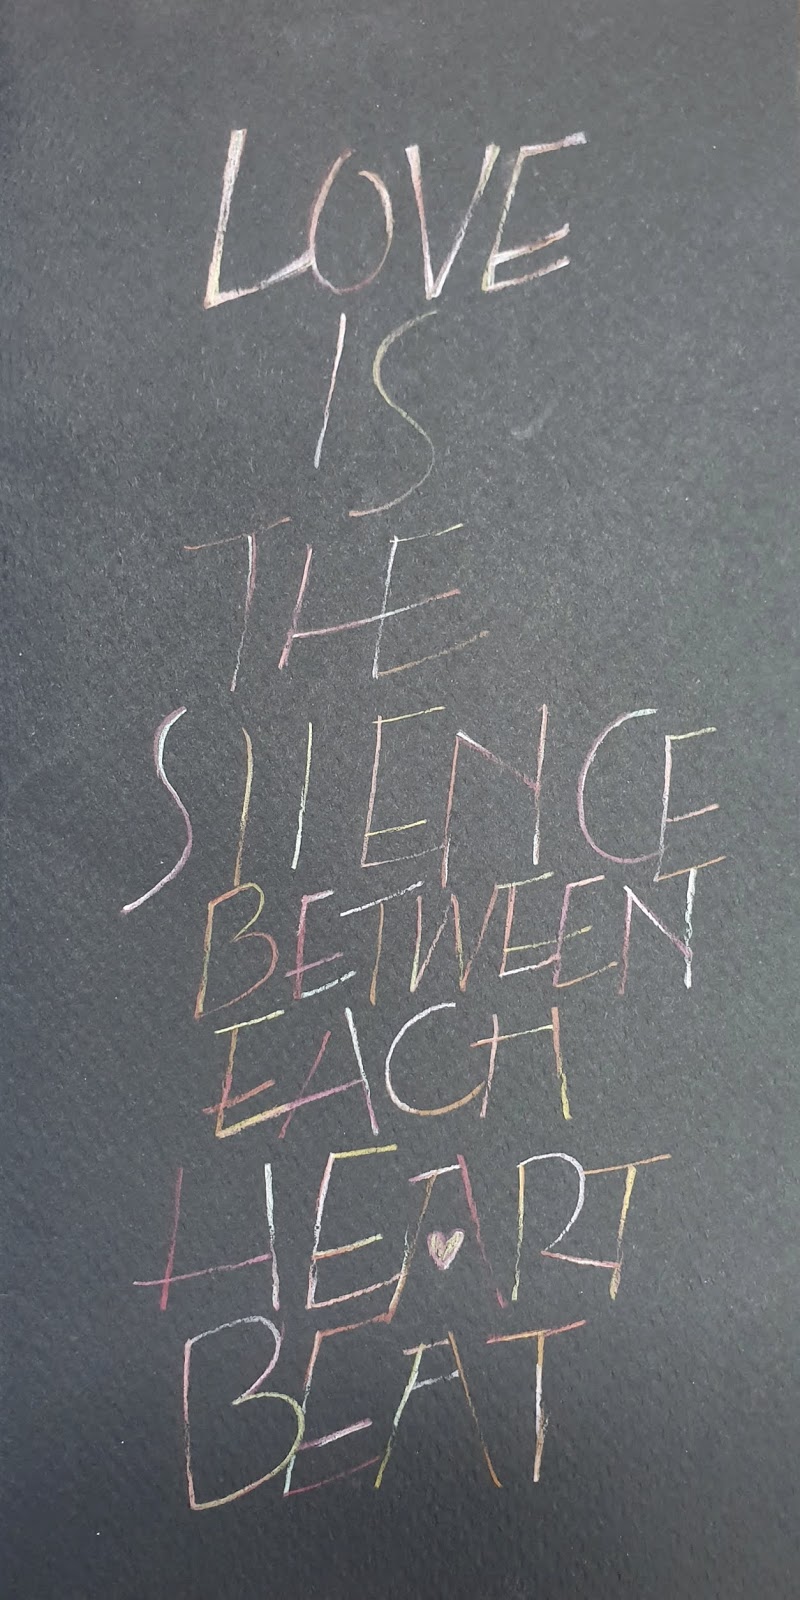 LOVE
IS
THE
SILENCE
BETWEEN
EACH
HEART
BEAT